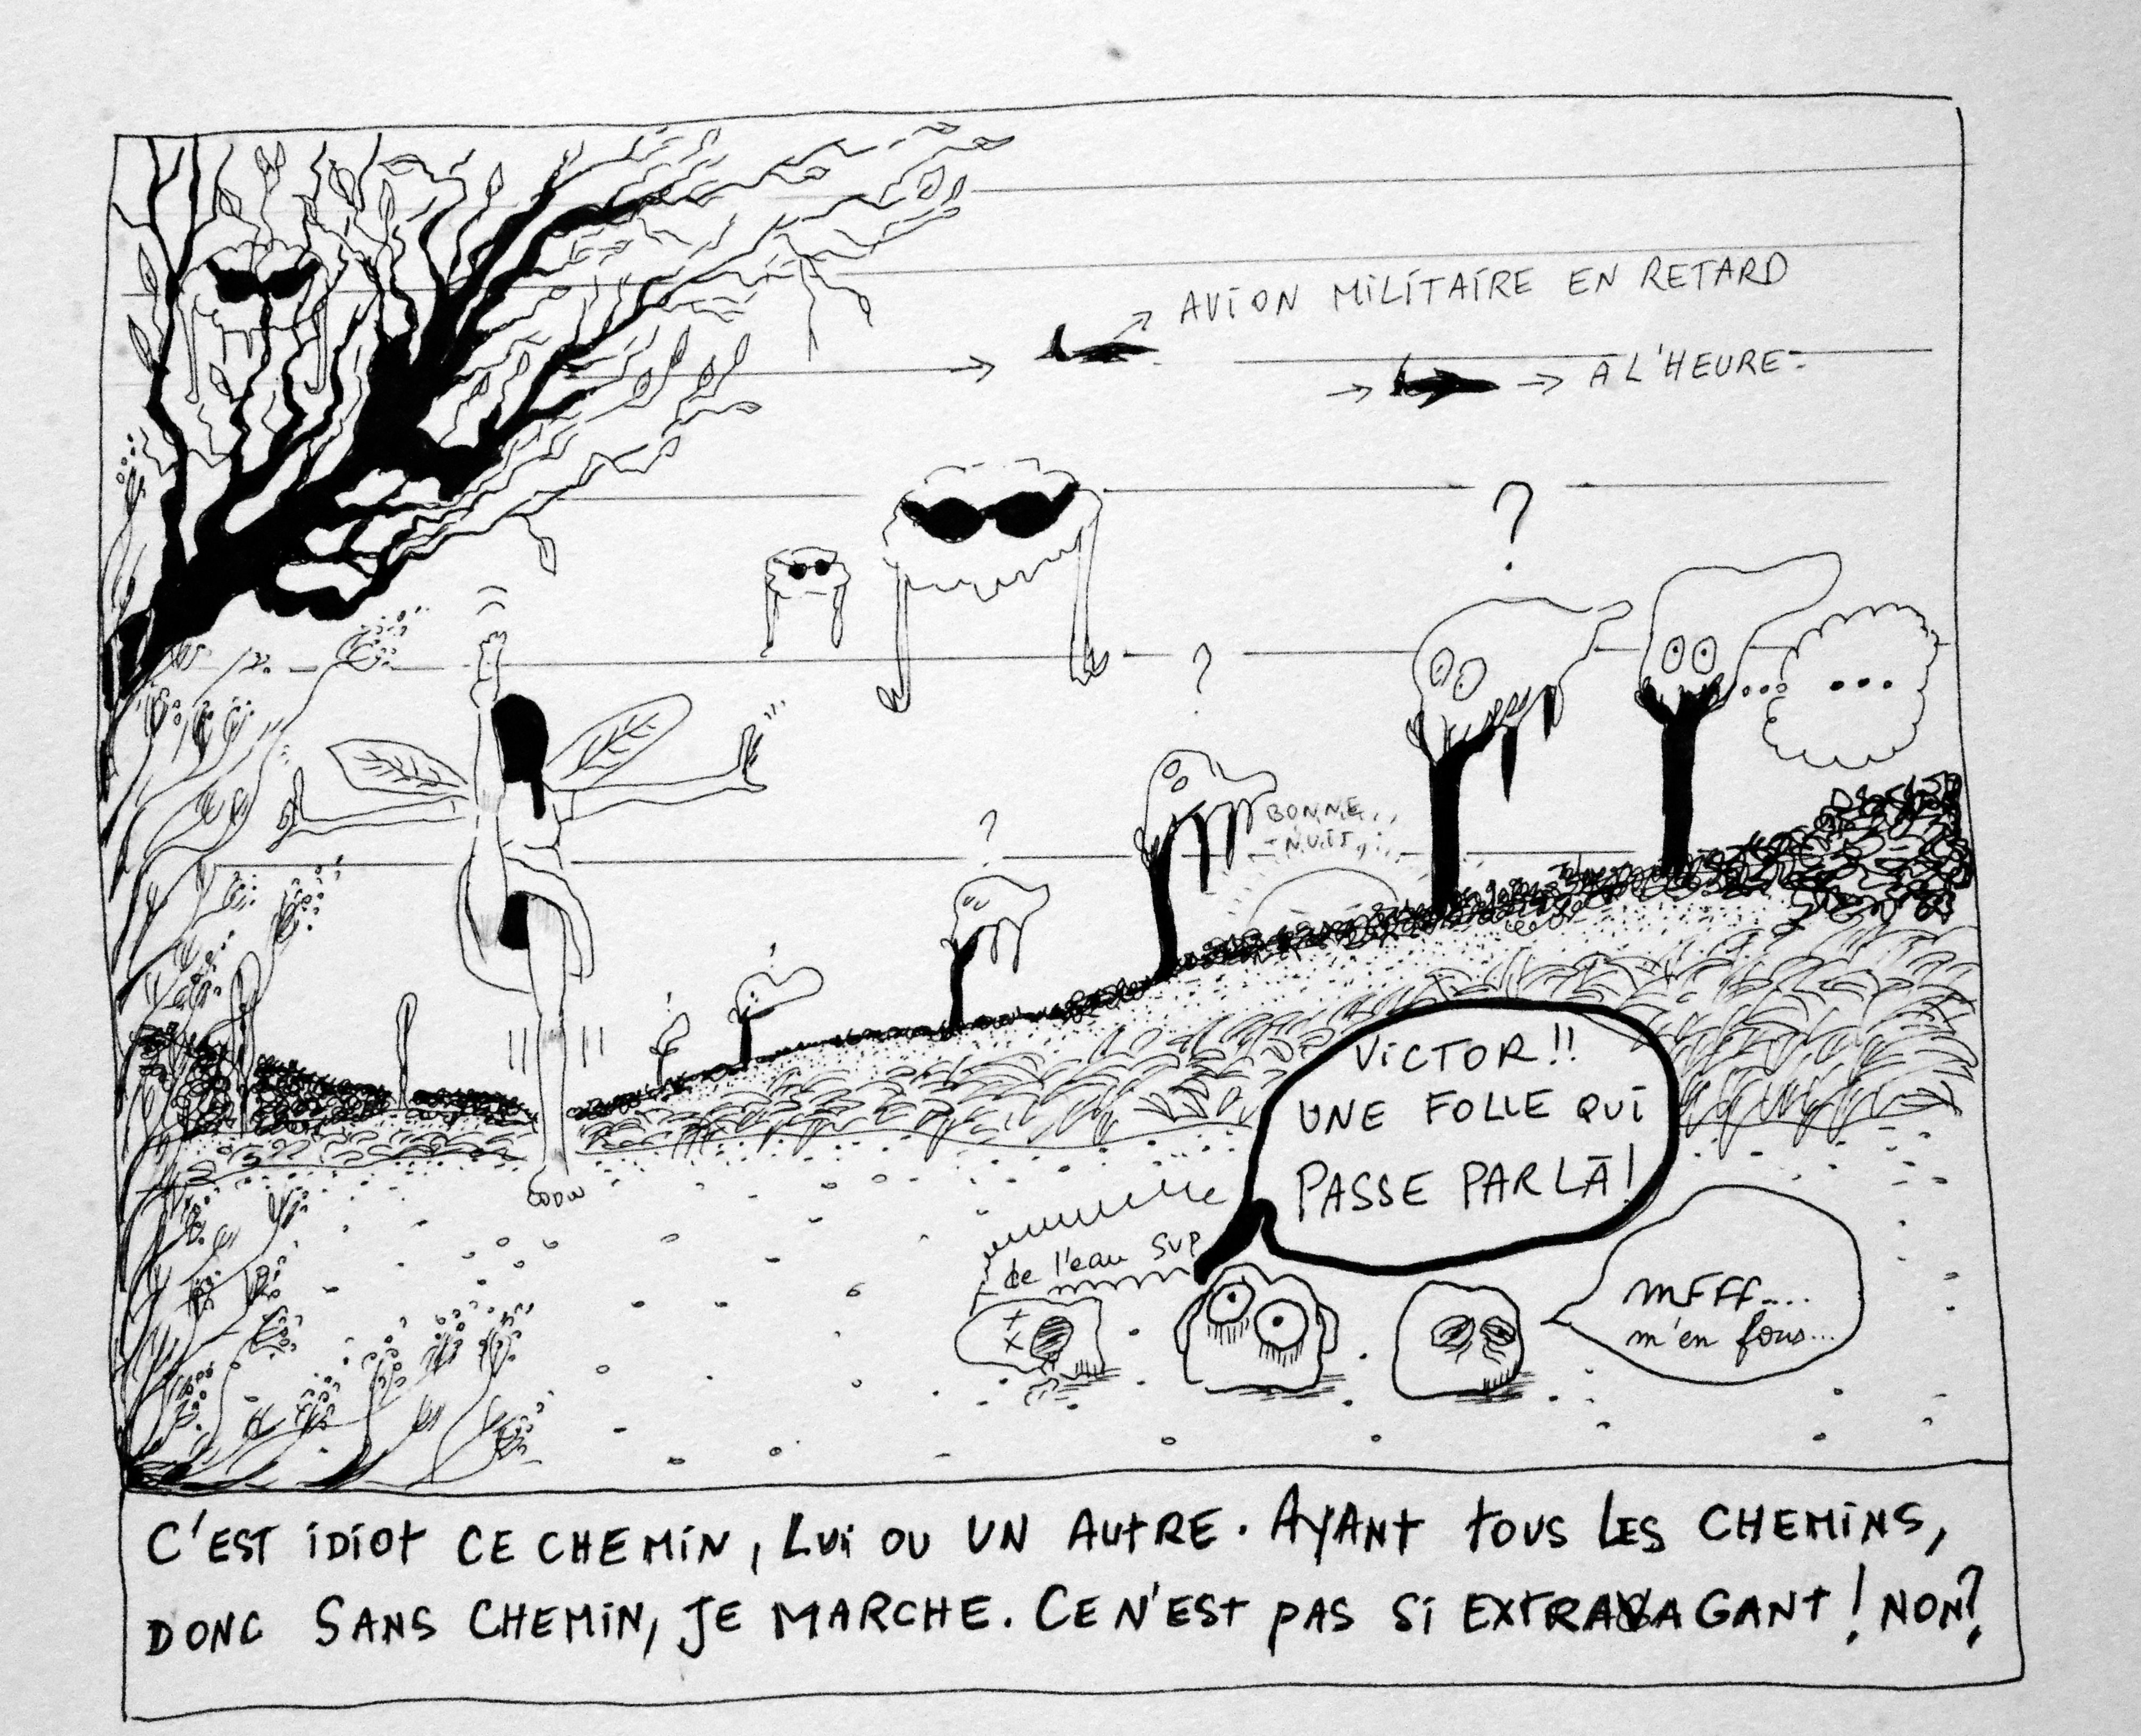 AVION MILITAIRE EN RETARD
A L'HEURE
?
?
?
...
BONNE
NUIT
VICTOR!!
UNE FOLLE QUI
PASSE PAR LÀ!
de l'eau SVP
MFFF....
m'en fous...
C'EST IDIOT CE CHEMIN, LUI OU UN AUTRE. AYANT TOUS LES CHEMINS,
DONC SANS CHEMIN, JE MARCHE. CE N'EST PAS SI EXTRAVAGANT! NON?